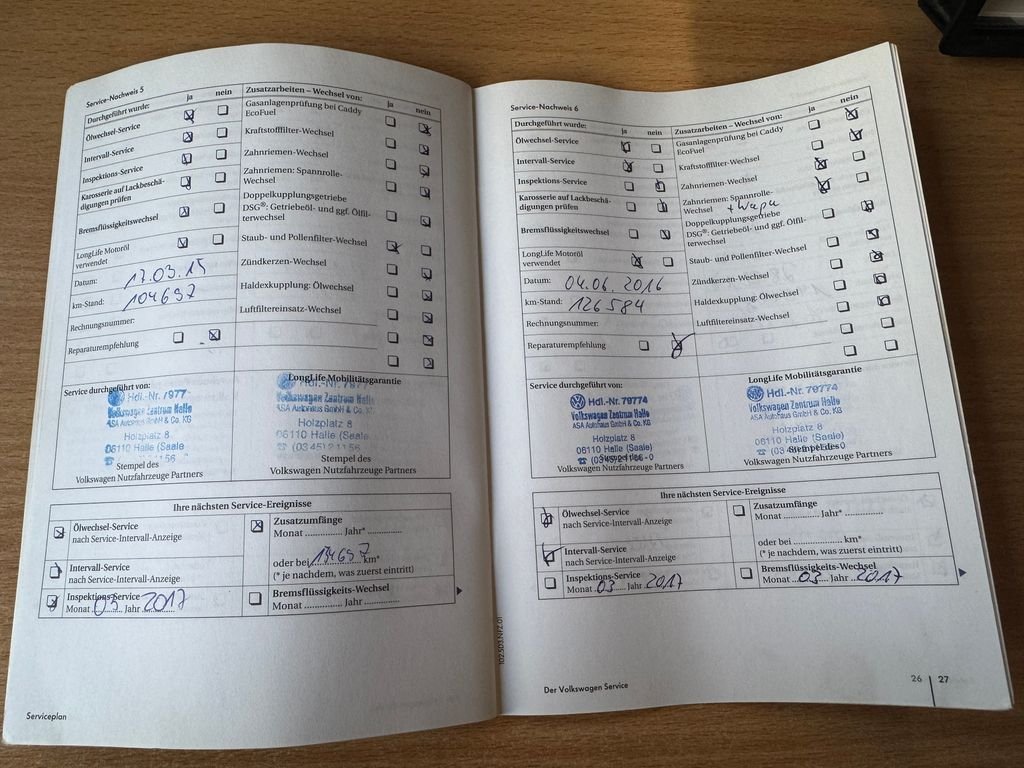 Service-Nachweis 5
Durchgeführt wurde: ja nein
Ölwechsel-Service
Intervall-Service
Inspektions-Service
Karosserie auf Lackbeschä-
digungen prüfen
Bremsflüssigkeitswechsel
LongLife Motoröl
verwendet
Datum: 17.03.15
km-Stand: 104697
Rechnungsnummer:
Reparaturempfehlung
Zusatzarbeiten – Wechsel von: ja nein
Gasanlagenprüfung bei Caddy
EcoFuel
Kraftstofffilter-Wechsel
Zahnriemen-Wechsel
Zahnriemen: Spannrolle-
Wechsel
Doppelkupplungsgetriebe
DSG®: Getriebeöl- und ggf. Ölfil-
terwechsel
Staub- und Pollenfilter-Wechsel
Zündkerzen-Wechsel
Haldexkupplung: Ölwechsel
Luftfiltereinsatz-Wechsel
Service durchgeführt von:
Hdl.-Nr. 7977
Volkswagen Zentrum Halle
ASA Autohaus GmbH & Co. KG
Holzplatz 8
06110 Halle (Saale)
Stempel des
Volkswagen Nutzfahrzeuge Partners
LongLife Mobilitätsgarantie
Volkswagen Zentrum Halle
ASA Autohaus GmbH & Co. KG
Holzplatz 8
06110 Halle (Saale
Stempel des
Volkswagen Nutzfahrzeuge Partners
Ihre nächsten Service-Ereignisse
Ölwechsel-Service
nach Service-Intervall-Anzeige
Intervall-Service
nach Service-Intervall-Anzeige
Inspektions-Service
Monat 03 Jahr 2017
Zusatzumfänge
Monat .............. Jahr* ..............
oder bei 134697 km*
(* je nachdem, was zuerst eintritt)
Bremsflüssigkeits-Wechsel
Monat .............. Jahr ..............
Serviceplan
102.5D3.NFZ.01
Service-Nachweis 6
Durchgeführt wurde: ja nein
Ölwechsel-Service
Intervall-Service
Inspektions-Service
Karosserie auf Lackbeschä-
digungen prüfen
Bremsflüssigkeitswechsel
LongLife Motoröl
verwendet
Datum: 04.06.2016
km-Stand: 126584
Rechnungsnummer:
Reparaturempfehlung
Zusatzarbeiten – Wechsel von: ja nein
Gasanlagenprüfung bei Caddy
EcoFuel
Kraftstofffilter-Wechsel
Zahnriemen-Wechsel
Zahnriemen: Spannrolle-
Wechsel + Wapu
Doppelkupplungsgetriebe
DSG®: Getriebeöl- und ggf. Ölfil-
terwechsel
Staub- und Pollenfilter-Wechsel
Zündkerzen-Wechsel
Haldexkupplung: Ölwechsel
Luftfiltereinsatz-Wechsel
Service durchgeführt von:
Hdl.-Nr. 79774
Volkswagen Zentrum Halle
ASA Autohaus GmbH & Co. KG
Holzplatz 8
06110 Halle (Saale)
Volkswagen Nutzfahrzeuge Partners
LongLife Mobilitätsgarantie
Hdl.-Nr. 79774
Volkswagen Zentrum Halle
ASA Autohaus GmbH & Co. KG
Holzplatz 8
06110 Halle (Saale)
Stempel des
Volkswagen Nutzfahrzeuge Partners
Ihre nächsten Service-Ereignisse
Ölwechsel-Service
nach Service-Intervall-Anzeige
Intervall-Service
nach Service-Intervall-Anzeige
Inspektions-Service
Monat 03 Jahr 2017
Zusatzumfänge
Monat .............. Jahr* ..............
oder bei .............. km*
(* je nachdem, was zuerst eintritt)
Bremsflüssigkeits-Wechsel
Monat 03 Jahr 2017
Der Volkswagen Service
26 27